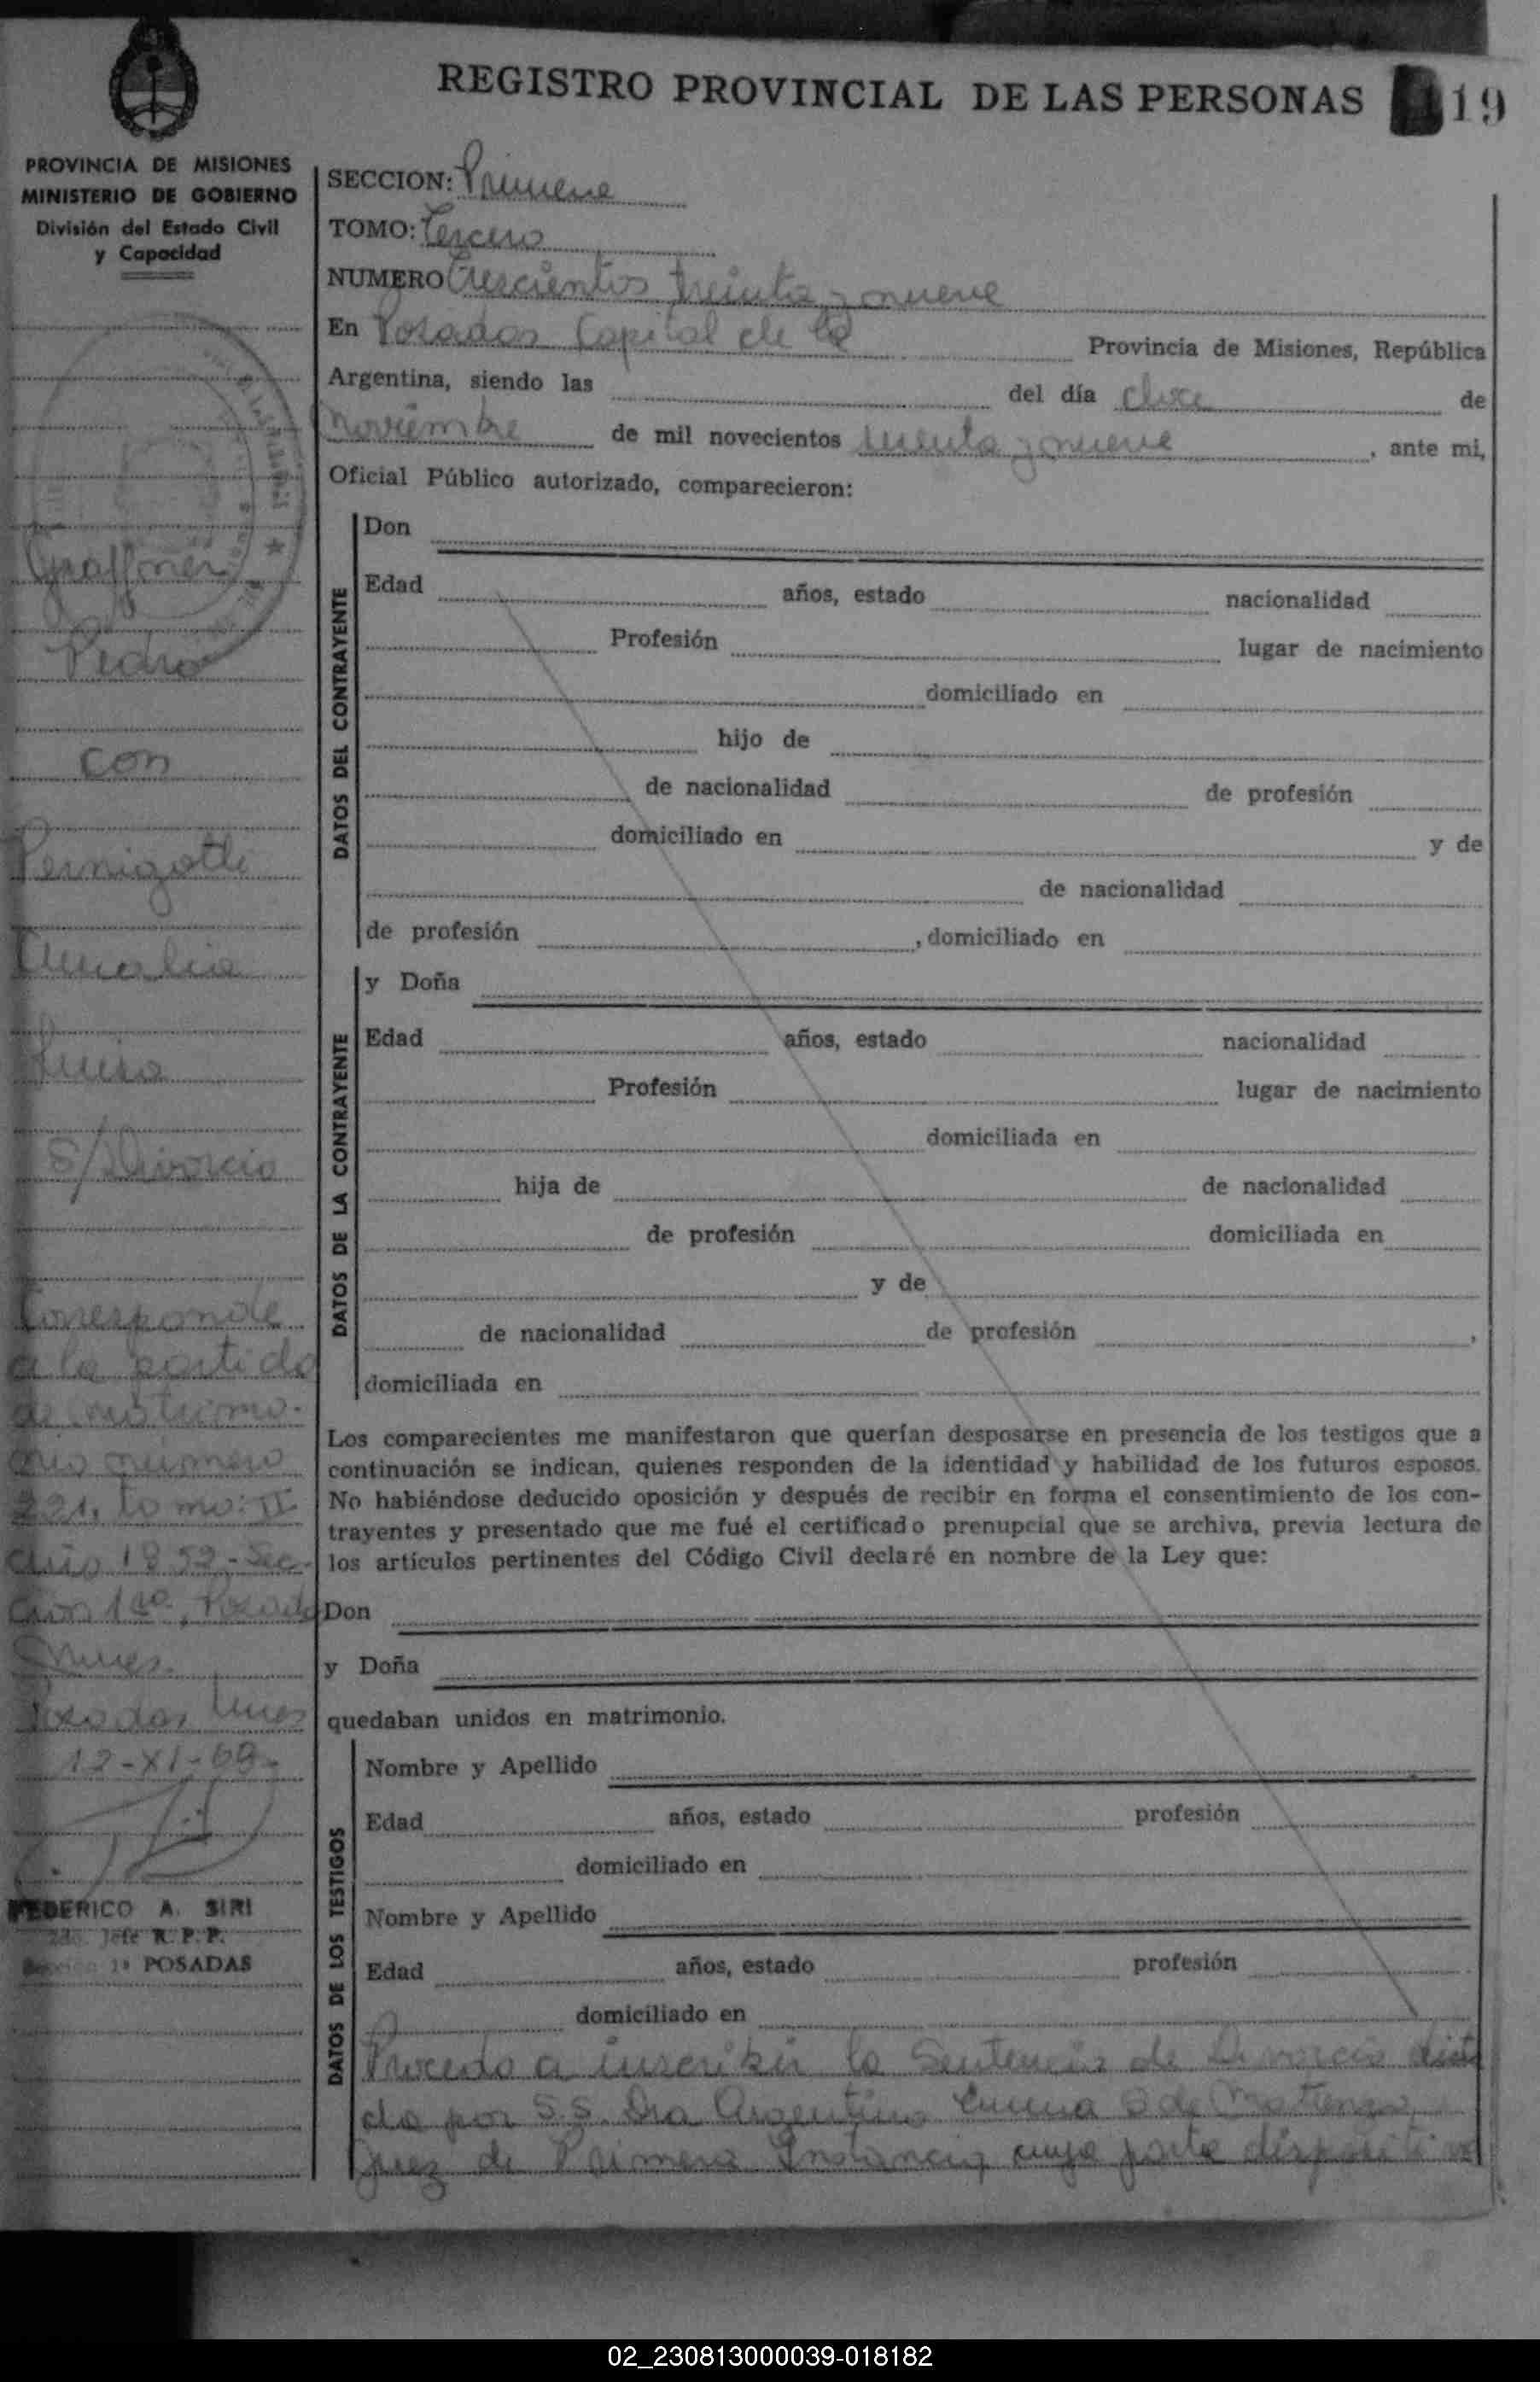 REGISTRO PROVINCIAL DE LAS PERSONAS 19
PROVINCIA DE MISIONES
MINISTERIO DE GOBIERNO
División del Estado Civil
y Capacidad
Graffner
Pedro
con
Pernigotti
Amalia
Luisa
S/Divorcio
Corresponde
a la partida
de matrimo-
nio número
221, tomo: II
año 1952 - Sec-
ción 1ra, Posadas
Mnes.
Posadas, Mnes
12-XI-69-
FEDERICO A. SIRI
Jefe R. P. P.
1ª POSADAS
SECCION: Primera
TOMO: Tercero
NUMERO Trescientos treinta y nueve
En Posadas Capital de la Provincia de Misiones, República
Argentina, siendo las del día doce de
Noviembre de mil novecientos sesenta y nueve, ante mi,
Oficial Público autorizado, comparecieron:
DATOS DEL CONTRAYENTE
Don
Edad años, estado nacionalidad
Profesión lugar de nacimiento
domiciliado en
hijo de
de nacionalidad de profesión
domiciliado en y de
de nacionalidad
de profesión , domiciliado en
DATOS DE LA CONTRAYENTE
y Doña
Edad años, estado nacionalidad
Profesión lugar de nacimiento
domiciliada en
hija de de nacionalidad
de profesión domiciliada en
y de
de nacionalidad de profesión ,
domiciliada en
Los comparecientes me manifestaron que querían desposarse en presencia de los testigos que a
continuación se indican, quienes responden de la identidad y habilidad de los futuros esposos.
No habiéndose deducido oposición y después de recibir en forma el consentimiento de los con-
trayentes y presentado que me fué el certificado prenupcial que se archiva, previa lectura de
los artículos pertinentes del Código Civil declaré en nombre de la Ley que:
Don
y Doña
quedaban unidos en matrimonio.
DATOS DE LOS TESTIGOS
Nombre y Apellido
Edad años, estado profesión
domiciliado en
Nombre y Apellido
Edad años, estado profesión
domiciliado en
Procedo a inscribir la Sentencia de Divorcio dicta
da por S.S. Dra Argentina Emma de
Juez de Primera Instancia, cuya parte dispositiva
02_230813000039-018182